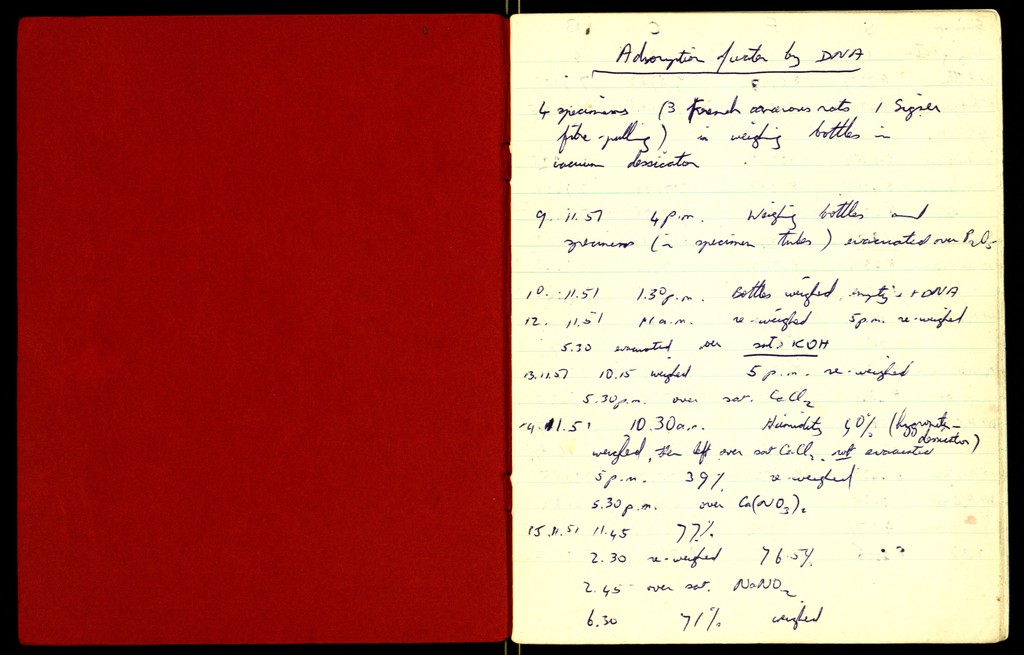 Adsorption of water by DNA
4 specimens (3 French various rots 1 Signer
fibre-pulling) in weighing bottles in
vacuum dessicator
9. 11.51 4 p.m. Weighing bottles and
specimens (in specimen tubes) evacuated over P₂O₅
10. 11.51 1.30 p.m. Bottles weighed, empty & + DNA
12. 11.51 11 a.m. re-weighed 5 p.m. re-weighed
5.30 evacuated over sat. KOH
13.11.51 10.15 weighed 5 p.m. re-weighed
5.30 p.m. over sat. CaCl₂
14.11.51 10.30 a.m. Humidity 40% (hygrometer
dessicator)
weighed, then left over sat CaCl₂, not evacuated
5 p.m. 39% re-weighed
5.30 p.m. over Ca(NO₃)₂
15.11.51 11.45 77%
2.30 re-weighed 76.5%
2.45 over sat. NaNO₂
6.30 71% weighed